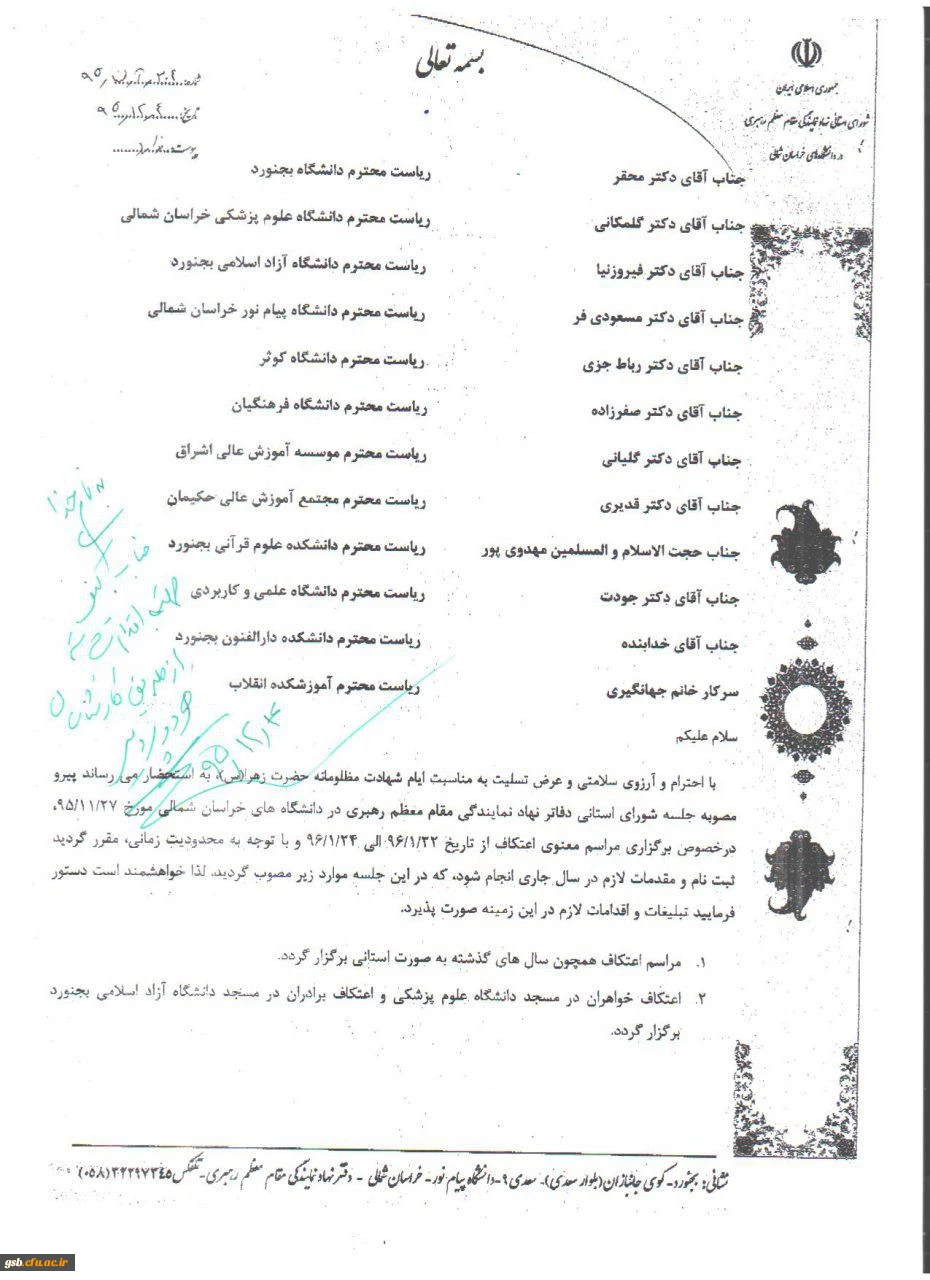 بسمه تعالی
جمهوری اسلامی ایران
شورای استانی نهاد نمایندگی مقام معظم رهبری
در دانشگاههای خراسان شمالی
شماره:
تاریخ:
پیوست:
جناب آقای دکتر محقر ریاست محترم دانشگاه بجنورد
جناب آقای دکتر گلمکانی ریاست محترم دانشگاه علوم پزشکی خراسان شمالی
جناب آقای دکتر فیروزنیا ریاست محترم دانشگاه آزاد اسلامی بجنورد
جناب آقای دکتر مسعودی فر ریاست محترم دانشگاه پیام نور خراسان شمالی
جناب آقای دکتر رباط جزی ریاست محترم دانشگاه کوثر
جناب آقای دکتر صفرزاده ریاست محترم دانشگاه فرهنگیان
جناب آقای دکتر گلیانی ریاست محترم موسسه آموزش عالی اشراق
جناب آقای دکتر قدیری ریاست محترم مجتمع آموزش عالی حکیمان
جناب حجت الاسلام و المسلمین مهدوی پور ریاست محترم دانشکده علوم قرآنی بجنورد
جناب آقای دکتر جودت ریاست محترم دانشگاه علمی و کاربردی
جناب آقای خدابنده ریاست محترم دانشکده دارالفنون بجنورد
سرکار خانم جهانگیری ریاست محترم آموزشکده انقلاب
سلام علیکم
با احترام و آرزوی سلامتی و عرض تسلیت به مناسبت ایام شهادت مظلومانه حضرت زهرا(س)، به استحضار می رساند پیرو
مصوبه جلسه شورای استانی دفاتر نهاد نمایندگی مقام معظم رهبری در دانشگاه های خراسان شمالی مورخ ۹۵/۱۱/۲۷،
درخصوص برگزاری مراسم معنوی اعتکاف از تاریخ ۹۶/۱/۲۲ الی ۹۶/۱/۲۴ و با توجه به محدودیت زمانی، مقرر گردید
ثبت نام و مقدمات لازم در سال جاری انجام شود، که در این جلسه موارد زیر مصوب گردید. لذا خواهشمند است دستور
فرمایید تبلیغات و اقدامات لازم در این زمینه صورت پذیرد.
۱. مراسم اعتکاف همچون سال های گذشته به صورت استانی برگزار گردد.
۲. اعتکاف خواهران در مسجد دانشگاه علوم پزشکی و اعتکاف برادران در مسجد دانشگاه آزاد اسلامی بجنورد
برگزار گردد.
نشانی: بجنورد- کوی جانبازان(بلوار سعدی)- سعدی ۹-دانشگاه پیام نور- خراسان شمالی - دفتر نهاد نمایندگی مقام معظم رهبری- تلفکس ۳۲۲۹۷۳۴۵(۰۵۸)
gsb.cfu.ac.ir